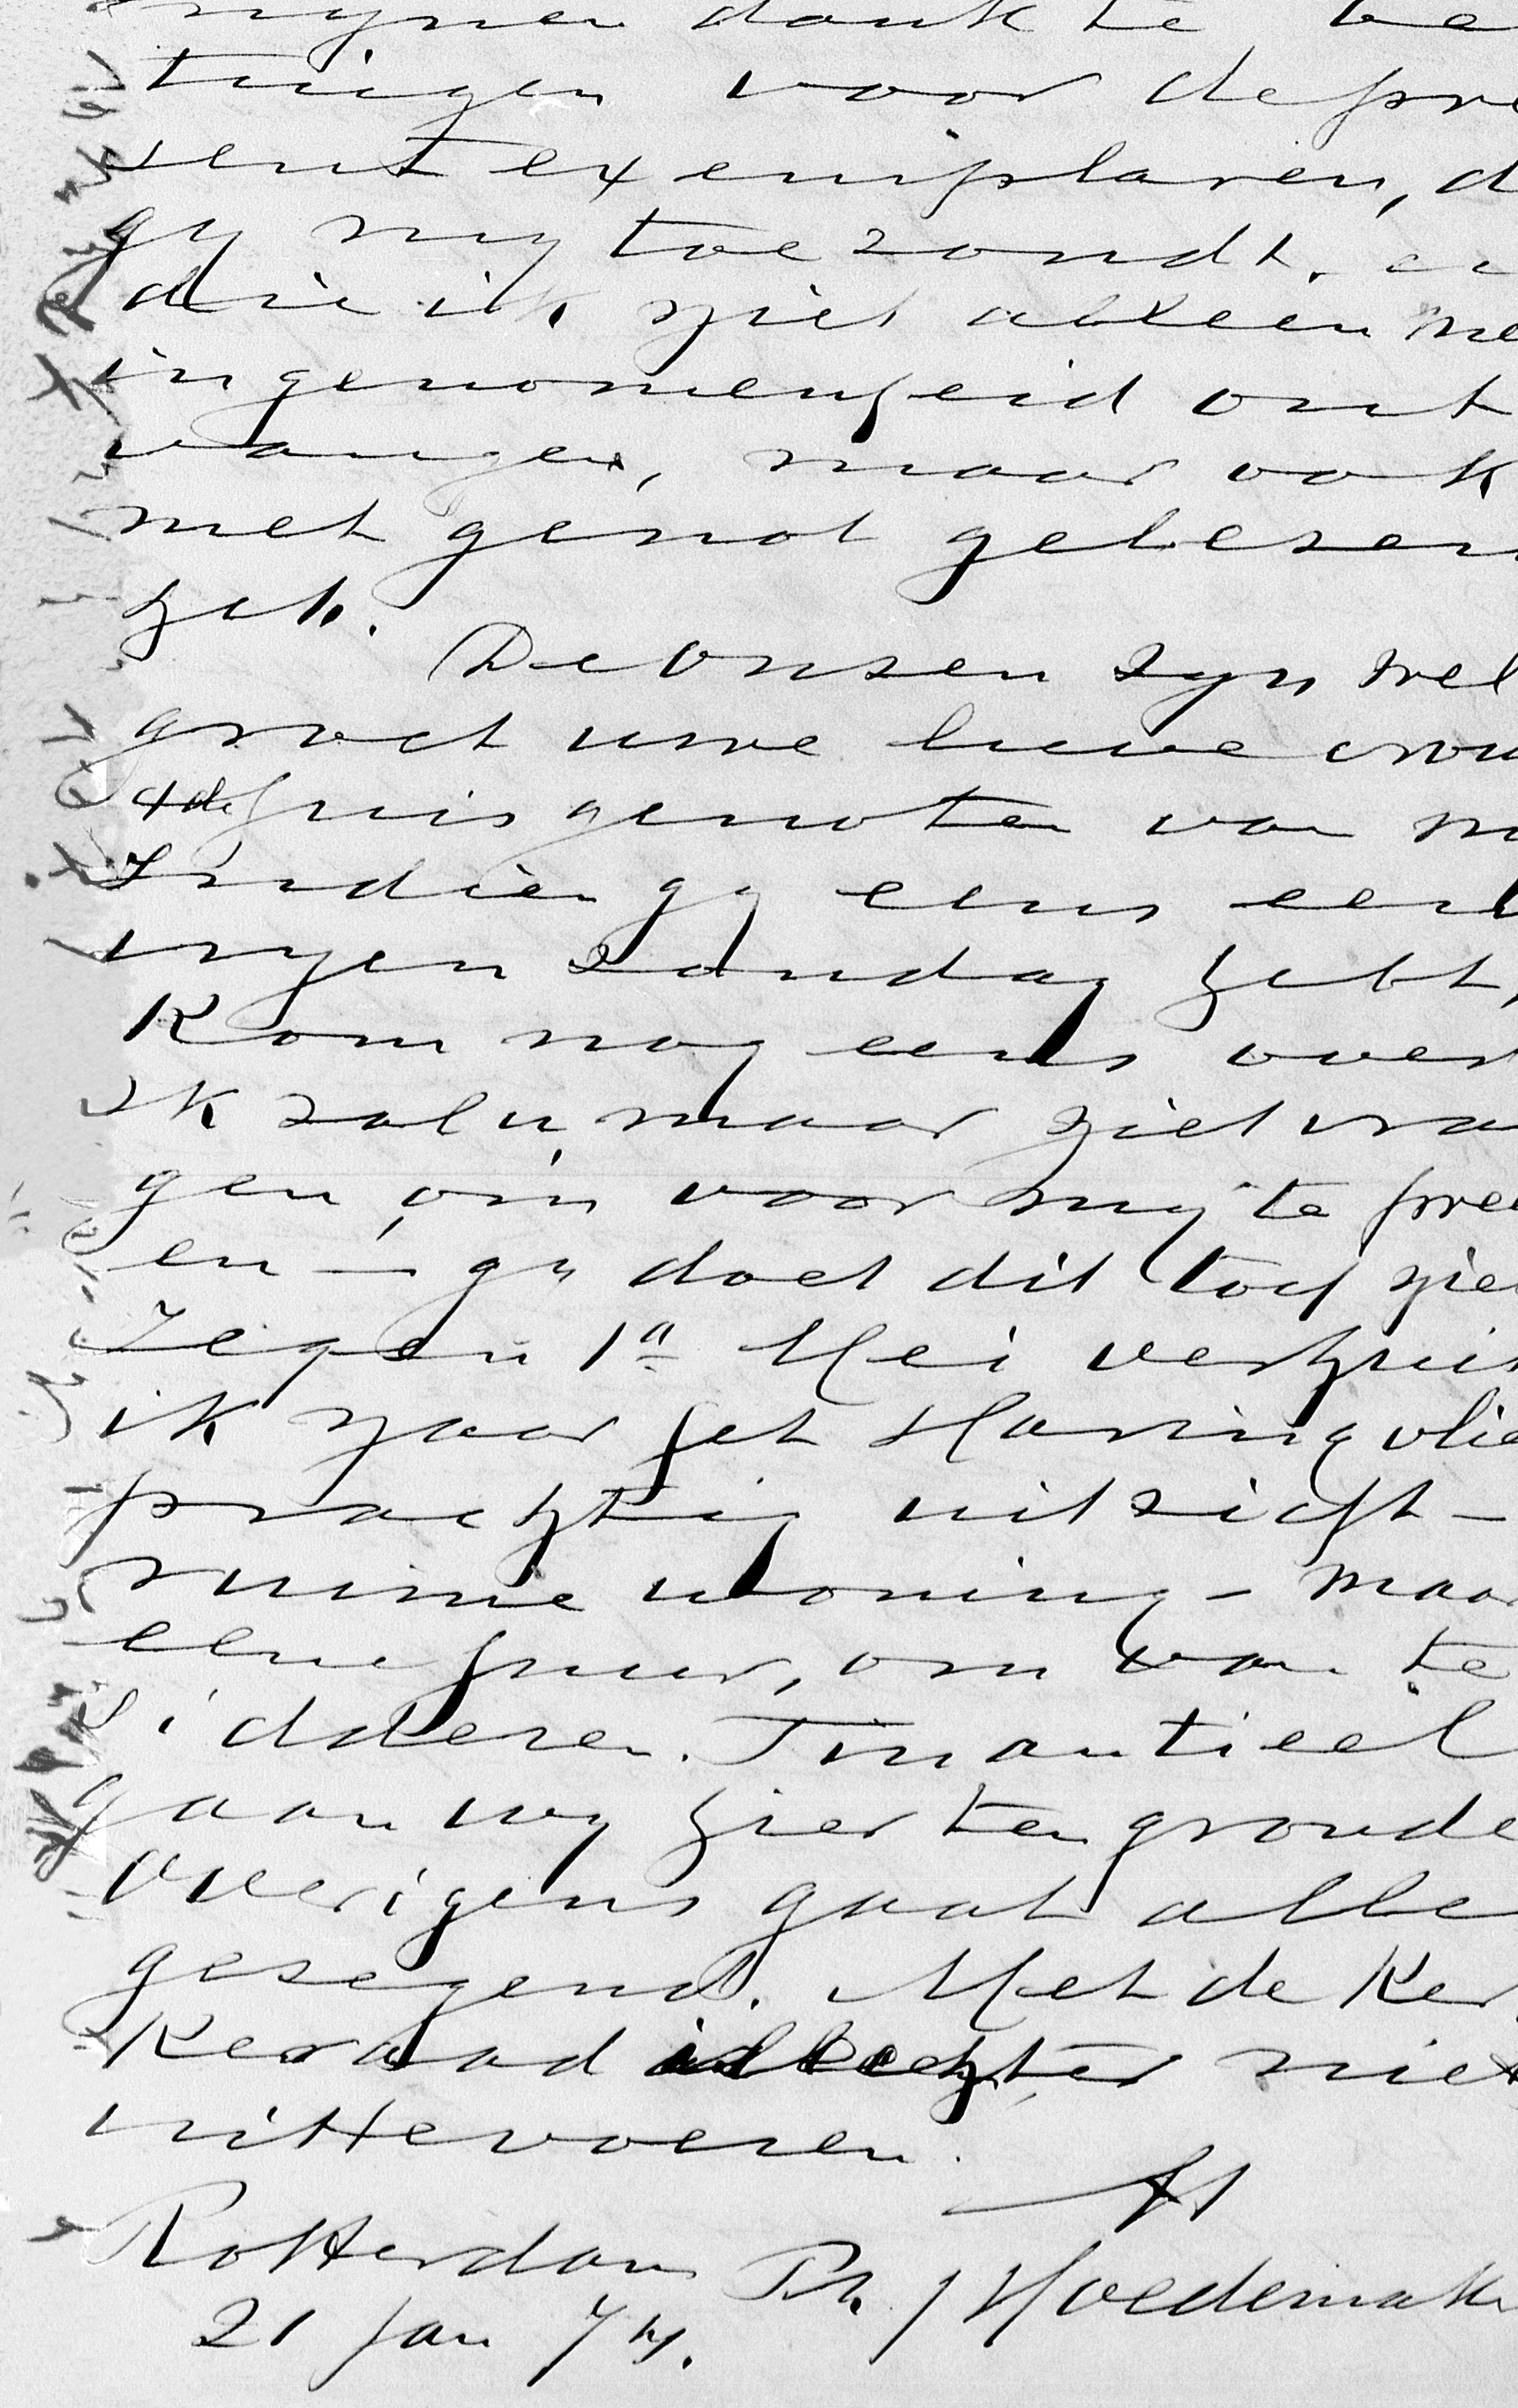 mynen dank te be
tuigen voor de pre
sent exemplaren, d
gy my toezondt. en
die ik niet alleen me
ingenomenheid ont
vangen, maar ook
met genot gelezen
heb.
De onzen zyn wel
groet uwe lieve vrou
& de huisgenoten van m
Indien gy eens een
vryen Zondag hebt,
Kom nog eens over
ik zal u maar niet vra
gen om voor my te pree
en – gy doet dit toch nie
Tegen 1ᵉ Mei verhuis
ik naar het Haringvlie
prachtig uitzicht –
ruime woning – maar
eene huur, om van te
sidderen. Finantieel
gaan wy hier ten gronde
Overigens gaat alle
gezegend. Met de Ker
Keraad is echter niet
uittevoeren.
tt
Rotterdam Ph. J Hoedemak
21 Jan 74.